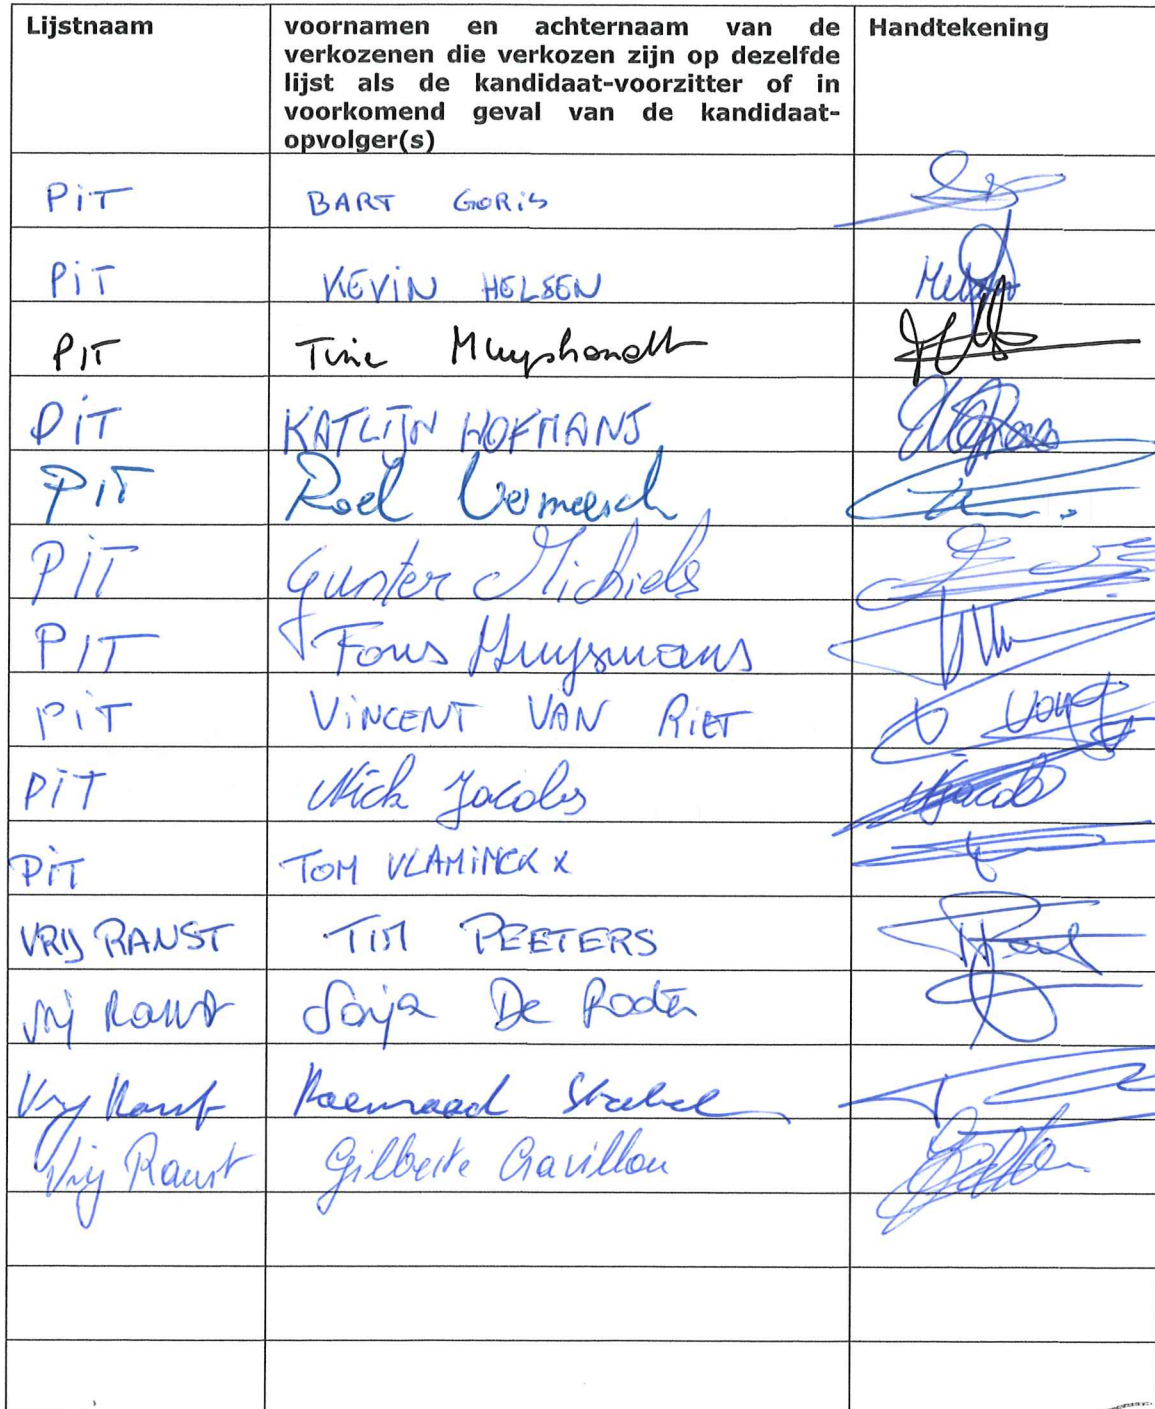 Lijstnaam
voornamen en achternaam van de
verkozenen die verkozen zijn op dezelfde
lijst als de kandidaat-voorzitter of in
voorkomend geval van de kandidaat-
opvolger(s)
Handtekening
PiT BART GORiS
PiT KEVIN HELSEN
PIT Tine Muyshondt
PiT KATLIJN HOFMANS
PiT Roel Vermeesch
PiT Gunter Michiels
PIT Fons Huysmans
PiT ViNCENT VAN RiET
PiT Nick Jacobs
PiT TOM VLAMiNCKX
VRIJ RANST TIM PEETERS
Vrij Ranst Sonja De Pooter
Vrij Ranst Koenraad
Vrij Ranst Gilberte Chavillon